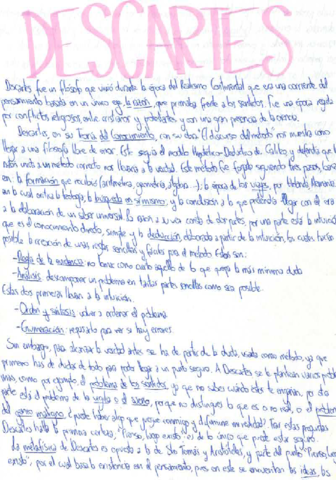 DESCARTES
Descartes fue un filósofo que vivió durante la época del Realismo Continental que era una corriente del
pensamiento basada en un único eje, la razón, que primaba frente a los sentidos. Fue una época regida
por conflictos religiosos entre cristianos y protestantes y con una gran presencia de la ciencia.
Descartes, en su Teoría del conocimiento, con su obra "El discurso del método" nos muestra como
llegar a una filosofía libre de error. Este seguía el modelo Hipotético-Deductivo de Galileo y defendía que la
razón unida a un método correcto nos llevaría a la verdad. Este método fue forjado siguiendo tres pasos,
en la formación que recibió (aritmética, geometría, álgebra...); la época de los viajes, por Holanda, Alemania
en la cual entra la búsqueda en sí mismo, y la conclusión a la que pretendía llegar con él era
a la elaboración de un saber universal. La razón a su vez consta de dos partes, por una parte está la intuición
que es el conocimiento directo, simple y la deducción, elaborada a partir de la intuición, las cuales hacían
posible la creación de unas reglas sencillas y fáciles para el método. Estas son:
- Regla de la evidencia: no tener como cierto aquello de lo que tenga la más mínima duda
- Análisis: descomponer un problema en tantas partes sencillas como sea posible.
Estas dos primeras llevan a la intuición.
- Orden y síntesis: volver a ordenar el problema.
- Enumeración: repasarlo para ver si hay errores.
Sin embargo, para alcanzar la verdad antes se ha de partir de la duda, usada como método, ya que
primero has de dudar de todo para poder llegar a un punto seguro. A Descartes se le plantean varios
como por ejemplo, el problema de los sentidos, ya que no sabes cuándo estos te engañan, por otra
parte está el problema de la vigilia o el sueño, porque no distingues lo que es o no real, o el problema
del genio maligno, ¿puede haber algo que juegue conmigo y difumine mi realidad? Tras estas preguntas
Descartes halla la primera certeza, "Pienso, luego existo" es de lo único que puede estar seguro.
La metafísica de Descartes es opuesta a la de Sto Tomás y Aristóteles, y parte del punto "Pienso, luego
existo", por el cual basa la existencia en el pensamiento, pues en este se encuentran las ideas, las